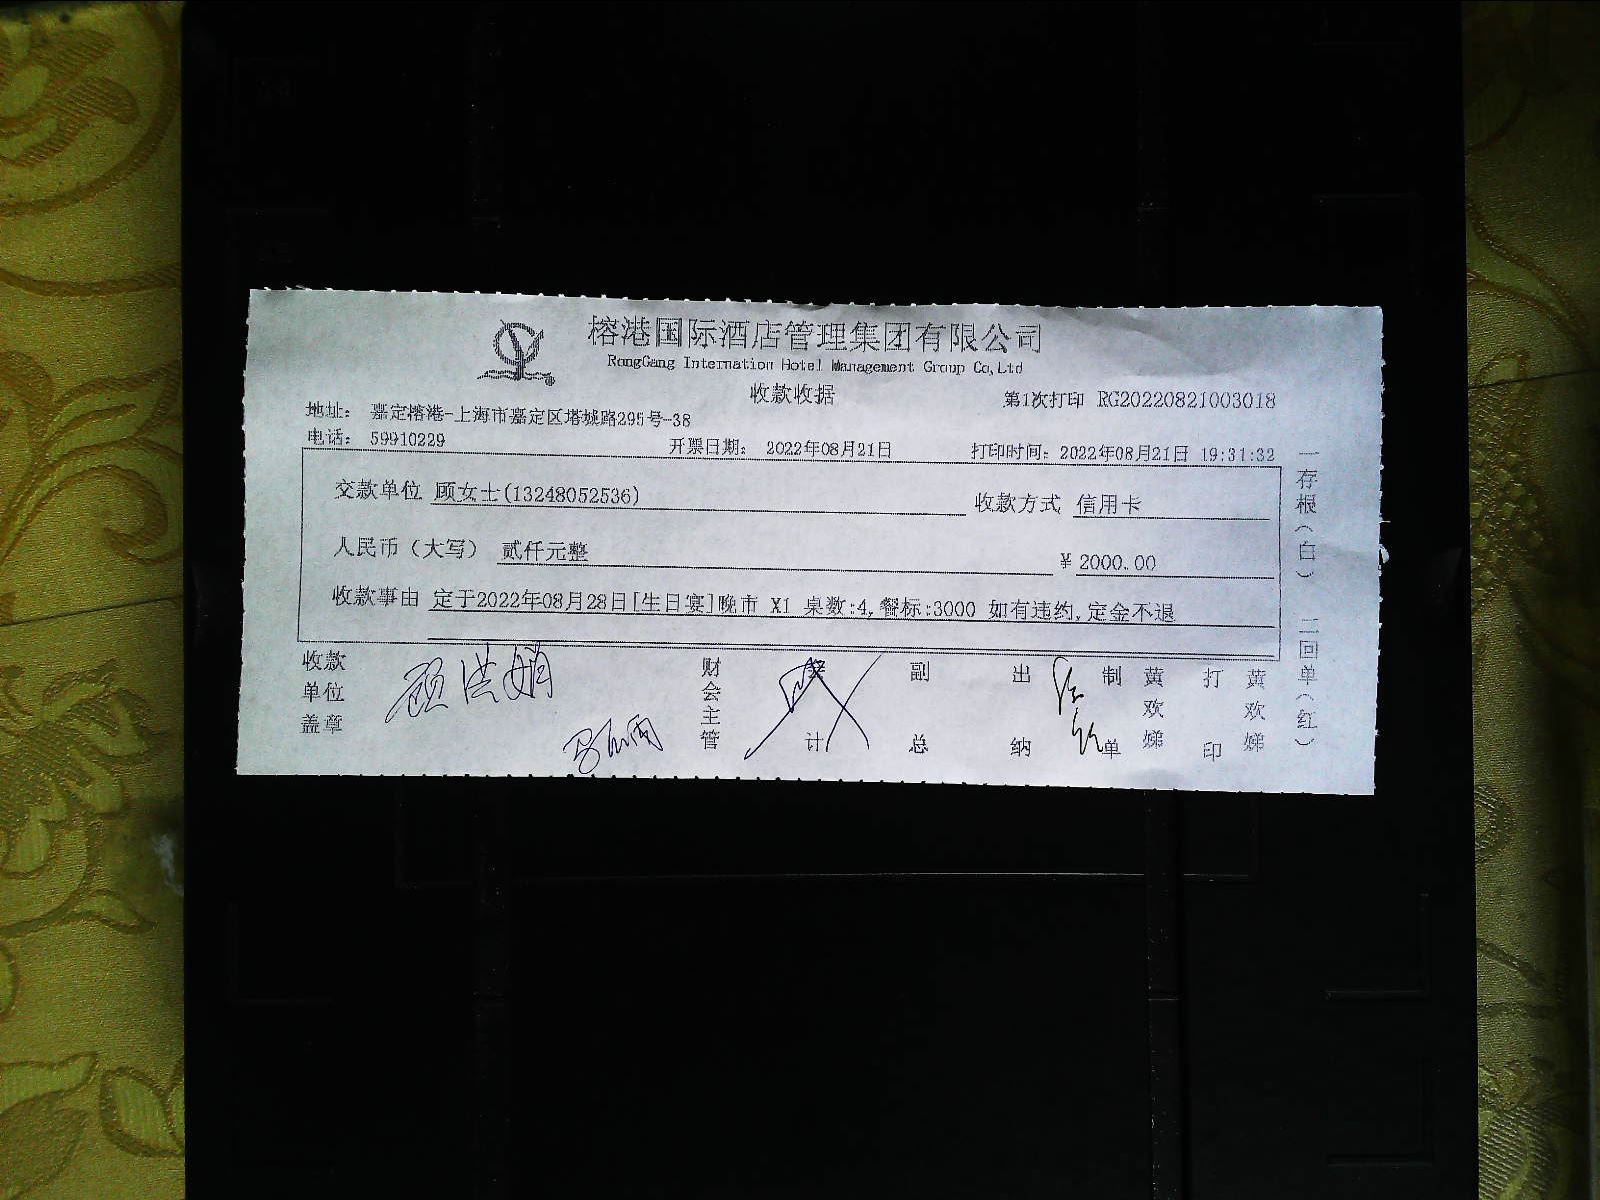 榕港国际酒店管理集团有限公司
RongGang Internation Hotel Management Group Co,Ltd
收款收据
第1次打印 RG20220821003018
地址： 嘉定榕港-上海市嘉定区塔城路295号-38
电话： 59910229
开票日期： 2022年08月21日
打印时间：2022年08月21日 19:31:32
交款单位 顾女士(13248052536)
收款方式 信用卡
人民币（大写） 贰仟元整
￥2000.00
收款事由 定于2022年08月28日[生日宴]晚市 X1 桌数:4,餐标:3000 如有违约,定金不退
收款单位盖章
顾洪娟
财会主管
计
副总
出纳
制单
黄欢娣
打印
黄欢娣
一存根（白） 二回单（红）